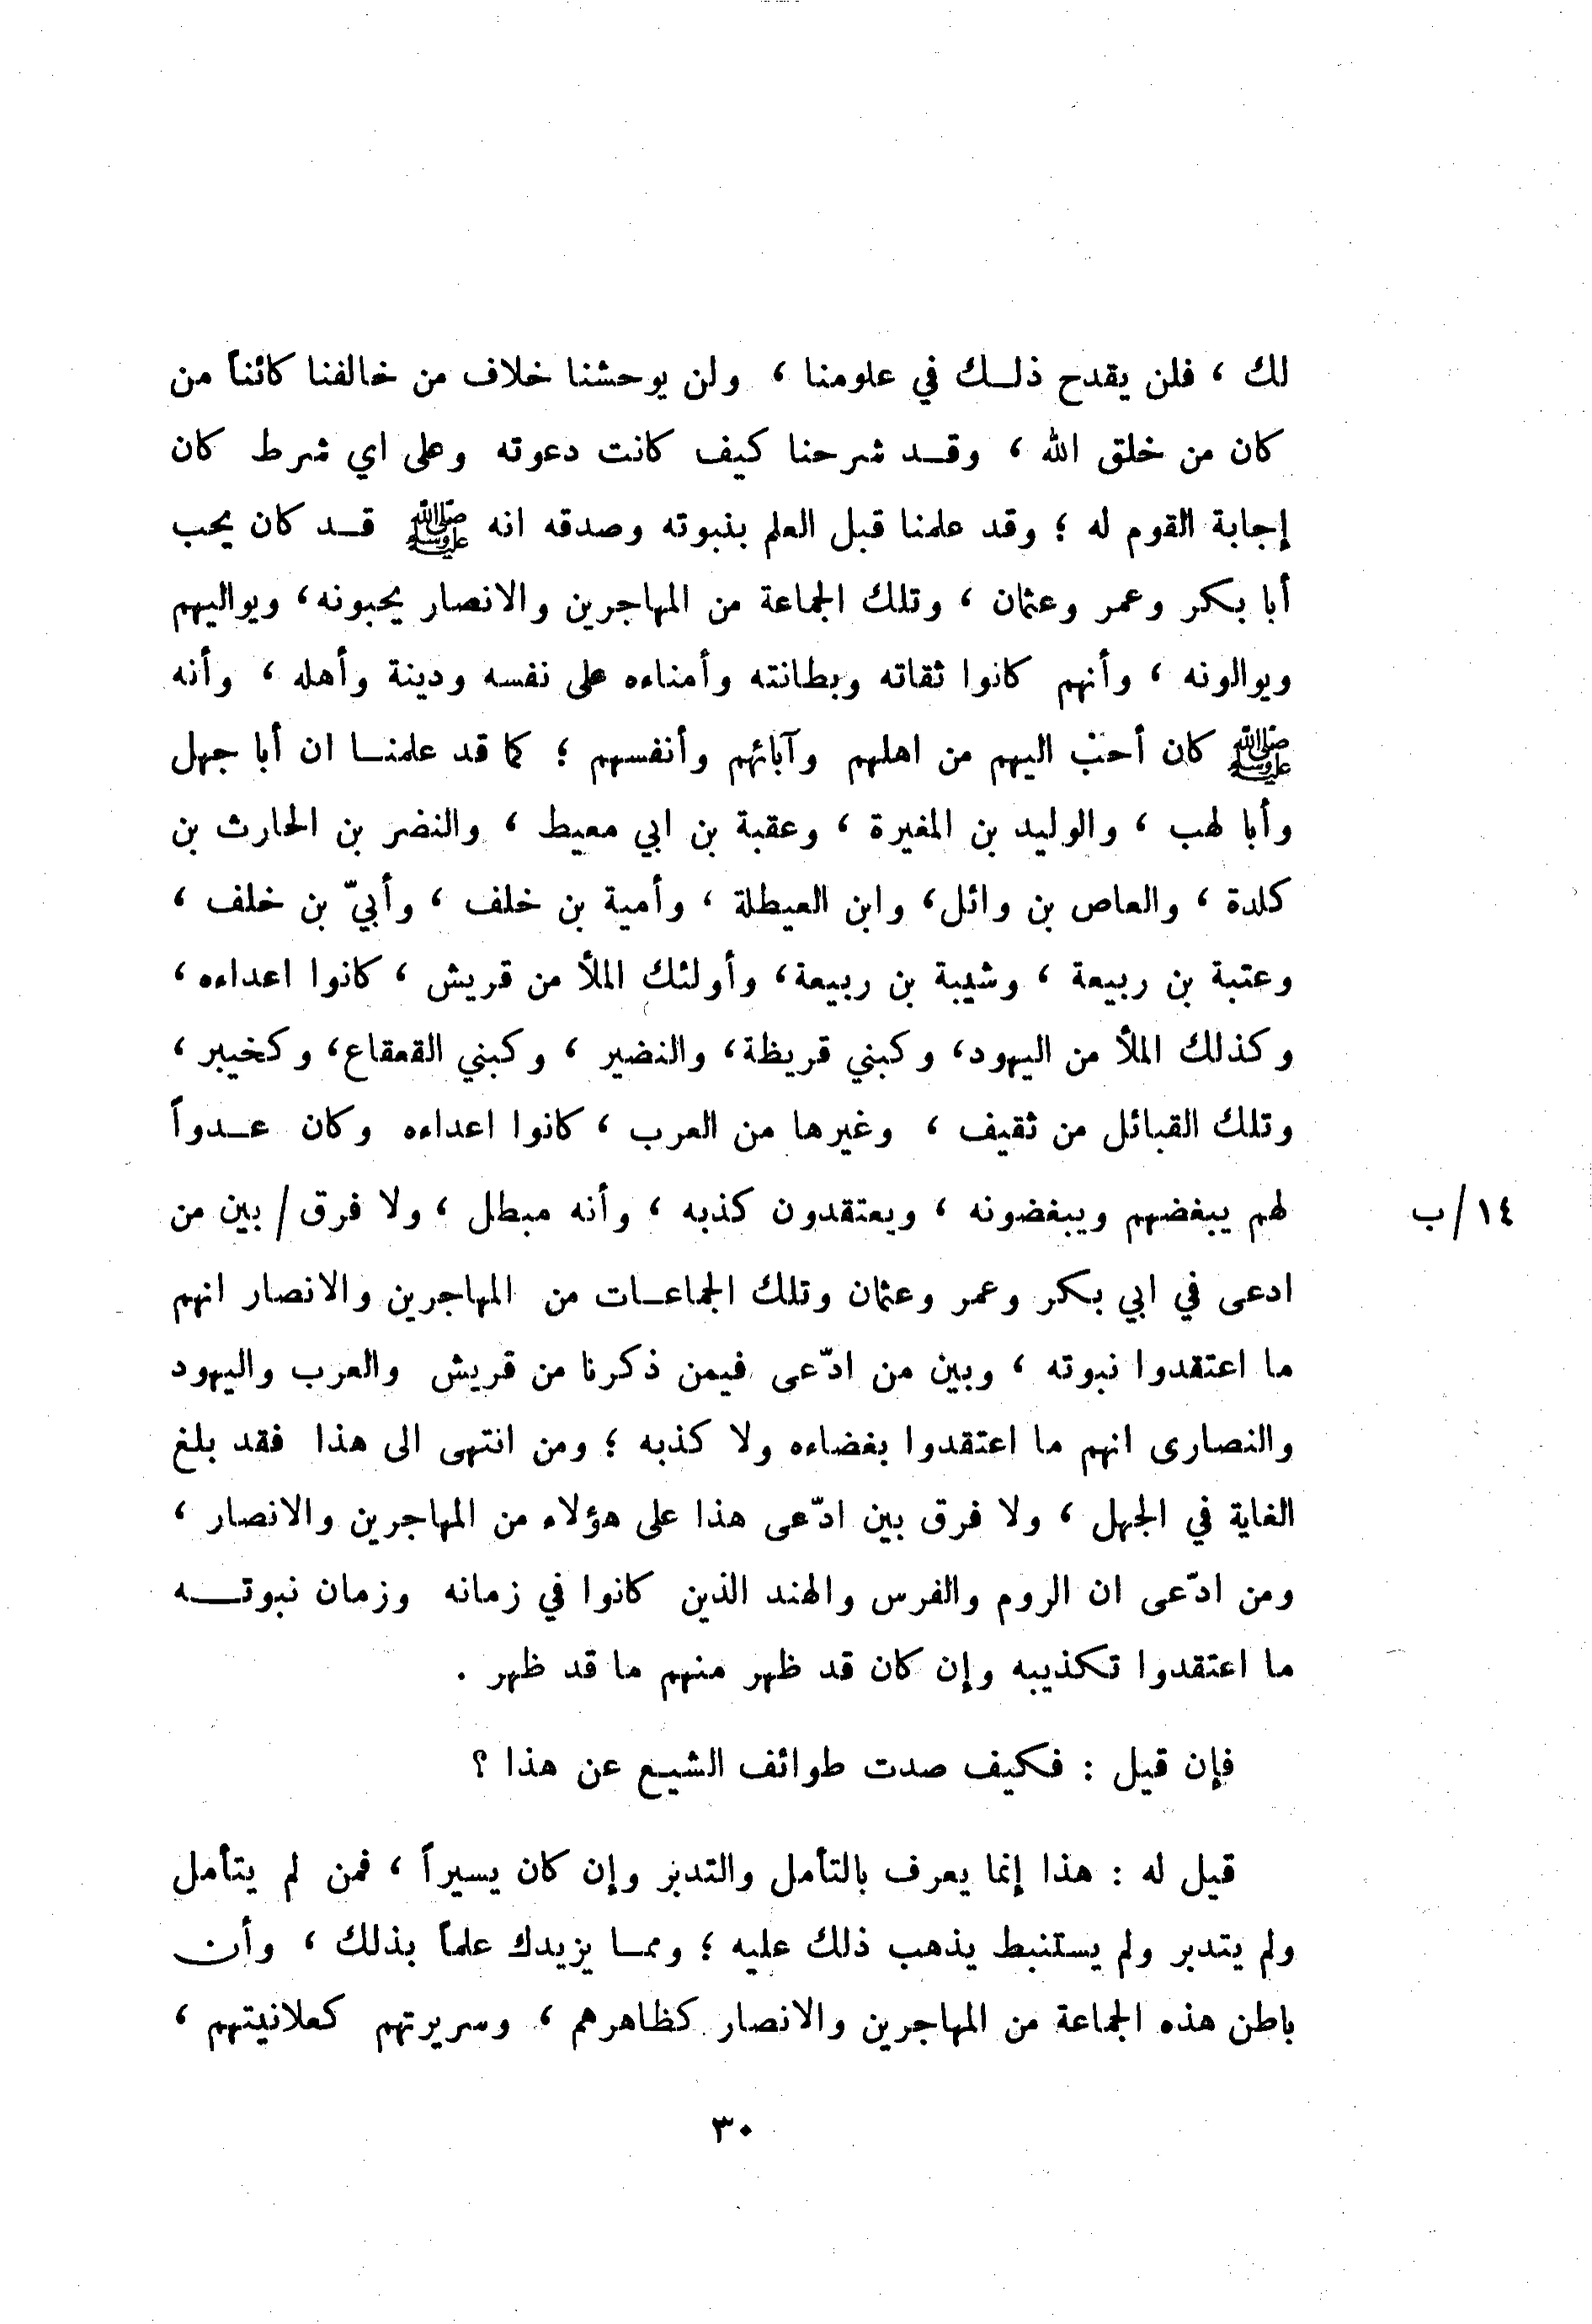 لك ، فلن يقدح ذلك في علومنا ، ولن يوحشنا خلاف من خالفنا كائناً من
كان من خلق الله ، وقد شرحنا كيف كانت دعوته وعلى اي شرط كان
إجابة القوم له ؛ وقد علمنا قبل العلم بنبوته وصدقه انه ﷺ قد كان يحب
أبا بكر وعمر وعثمان ، وتلك الجماعة من المهاجرين والانصار يحبونه ، ويواليهم
ويوالونه ، وأنهم كانوا ثقاته وبطانته وأمناءه على نفسه ودينة وأهله ، وأنه
ﷺ كان أحبّ اليهم من اهلهم وآبائهم وأنفسهم ؛ كما قد علمنا ان أبا جهل
وأبا لهب ، والوليد بن المغيرة ، وعقبة بن ابي معيط ، والنضر بن الحارث بن
كلدة ، والعاص بن وائل ، وابن العيطلة ، وأمية بن خلف ، وأبيّ بن خلف ،
وعتبة بن ربيعة ، وشيبة بن ربيعة ، وأولئك الملأ من قريش ، كانوا اعداءه ،
وكذلك الملأ من اليهود ، وكبني قريظة ، والنضير ، وكبني القعقاع ، وكخيبر ،
وتلك القبائل من ثقيف ، وغيرها من العرب ، كانوا اعداءه وكان عدواً
لهم يبغضهم ويبغضونه ، ويعتقدون كذبه ، وأنه مبطل ، ولا فرق / بين من
١٤/ب
ادعى في ابي بكر وعمر وعثمان وتلك الجماعات من المهاجرين والانصار انهم
ما اعتقدوا نبوته ، وبين من ادّعى فيمن ذكرنا من قريش والعرب واليهود
والنصارى انهم ما اعتقدوا بغضاءه ولا كذبه ؛ ومن انتهى الى هذا فقد بلغ
الغاية في الجهل ، ولا فرق بين ادّعى هذا على هؤلاء من المهاجرين والانصار ،
ومن ادّعى ان الروم والفرس والهند الذين كانوا في زمانه وزمان نبوته
ما اعتقدوا تكذيبه وإن كان قد ظهر منهم ما قد ظهر .
فإن قيل : فكيف صدت طوائف الشيع عن هذا ؟
قيل له : هذا إنما يعرف بالتأمل والتدبر وإن كان يسيراً ، فمن لم يتأمل
ولم يتدبر ولم يستنبط يذهب ذلك عليه ؛ ومما يزيدك علماً بذلك ، وأن
باطن هذه الجماعة من المهاجرين والانصار كظاهرهم ، وسريرتهم كعلانيتهم ،
٣٠